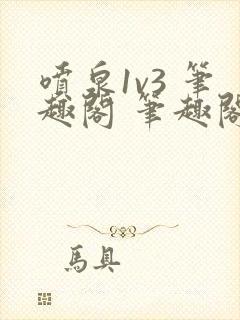 噴泉1v3 筆
趣閣 筆趣閣
馬具